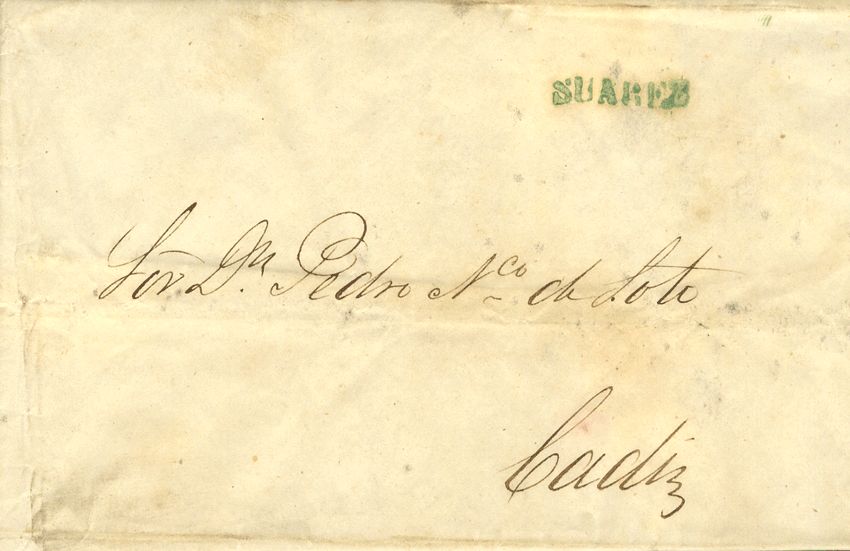 SUAREZ
Sōr D.ⁿ Pedro N.ᶜᵒ de Soto
Cadiz